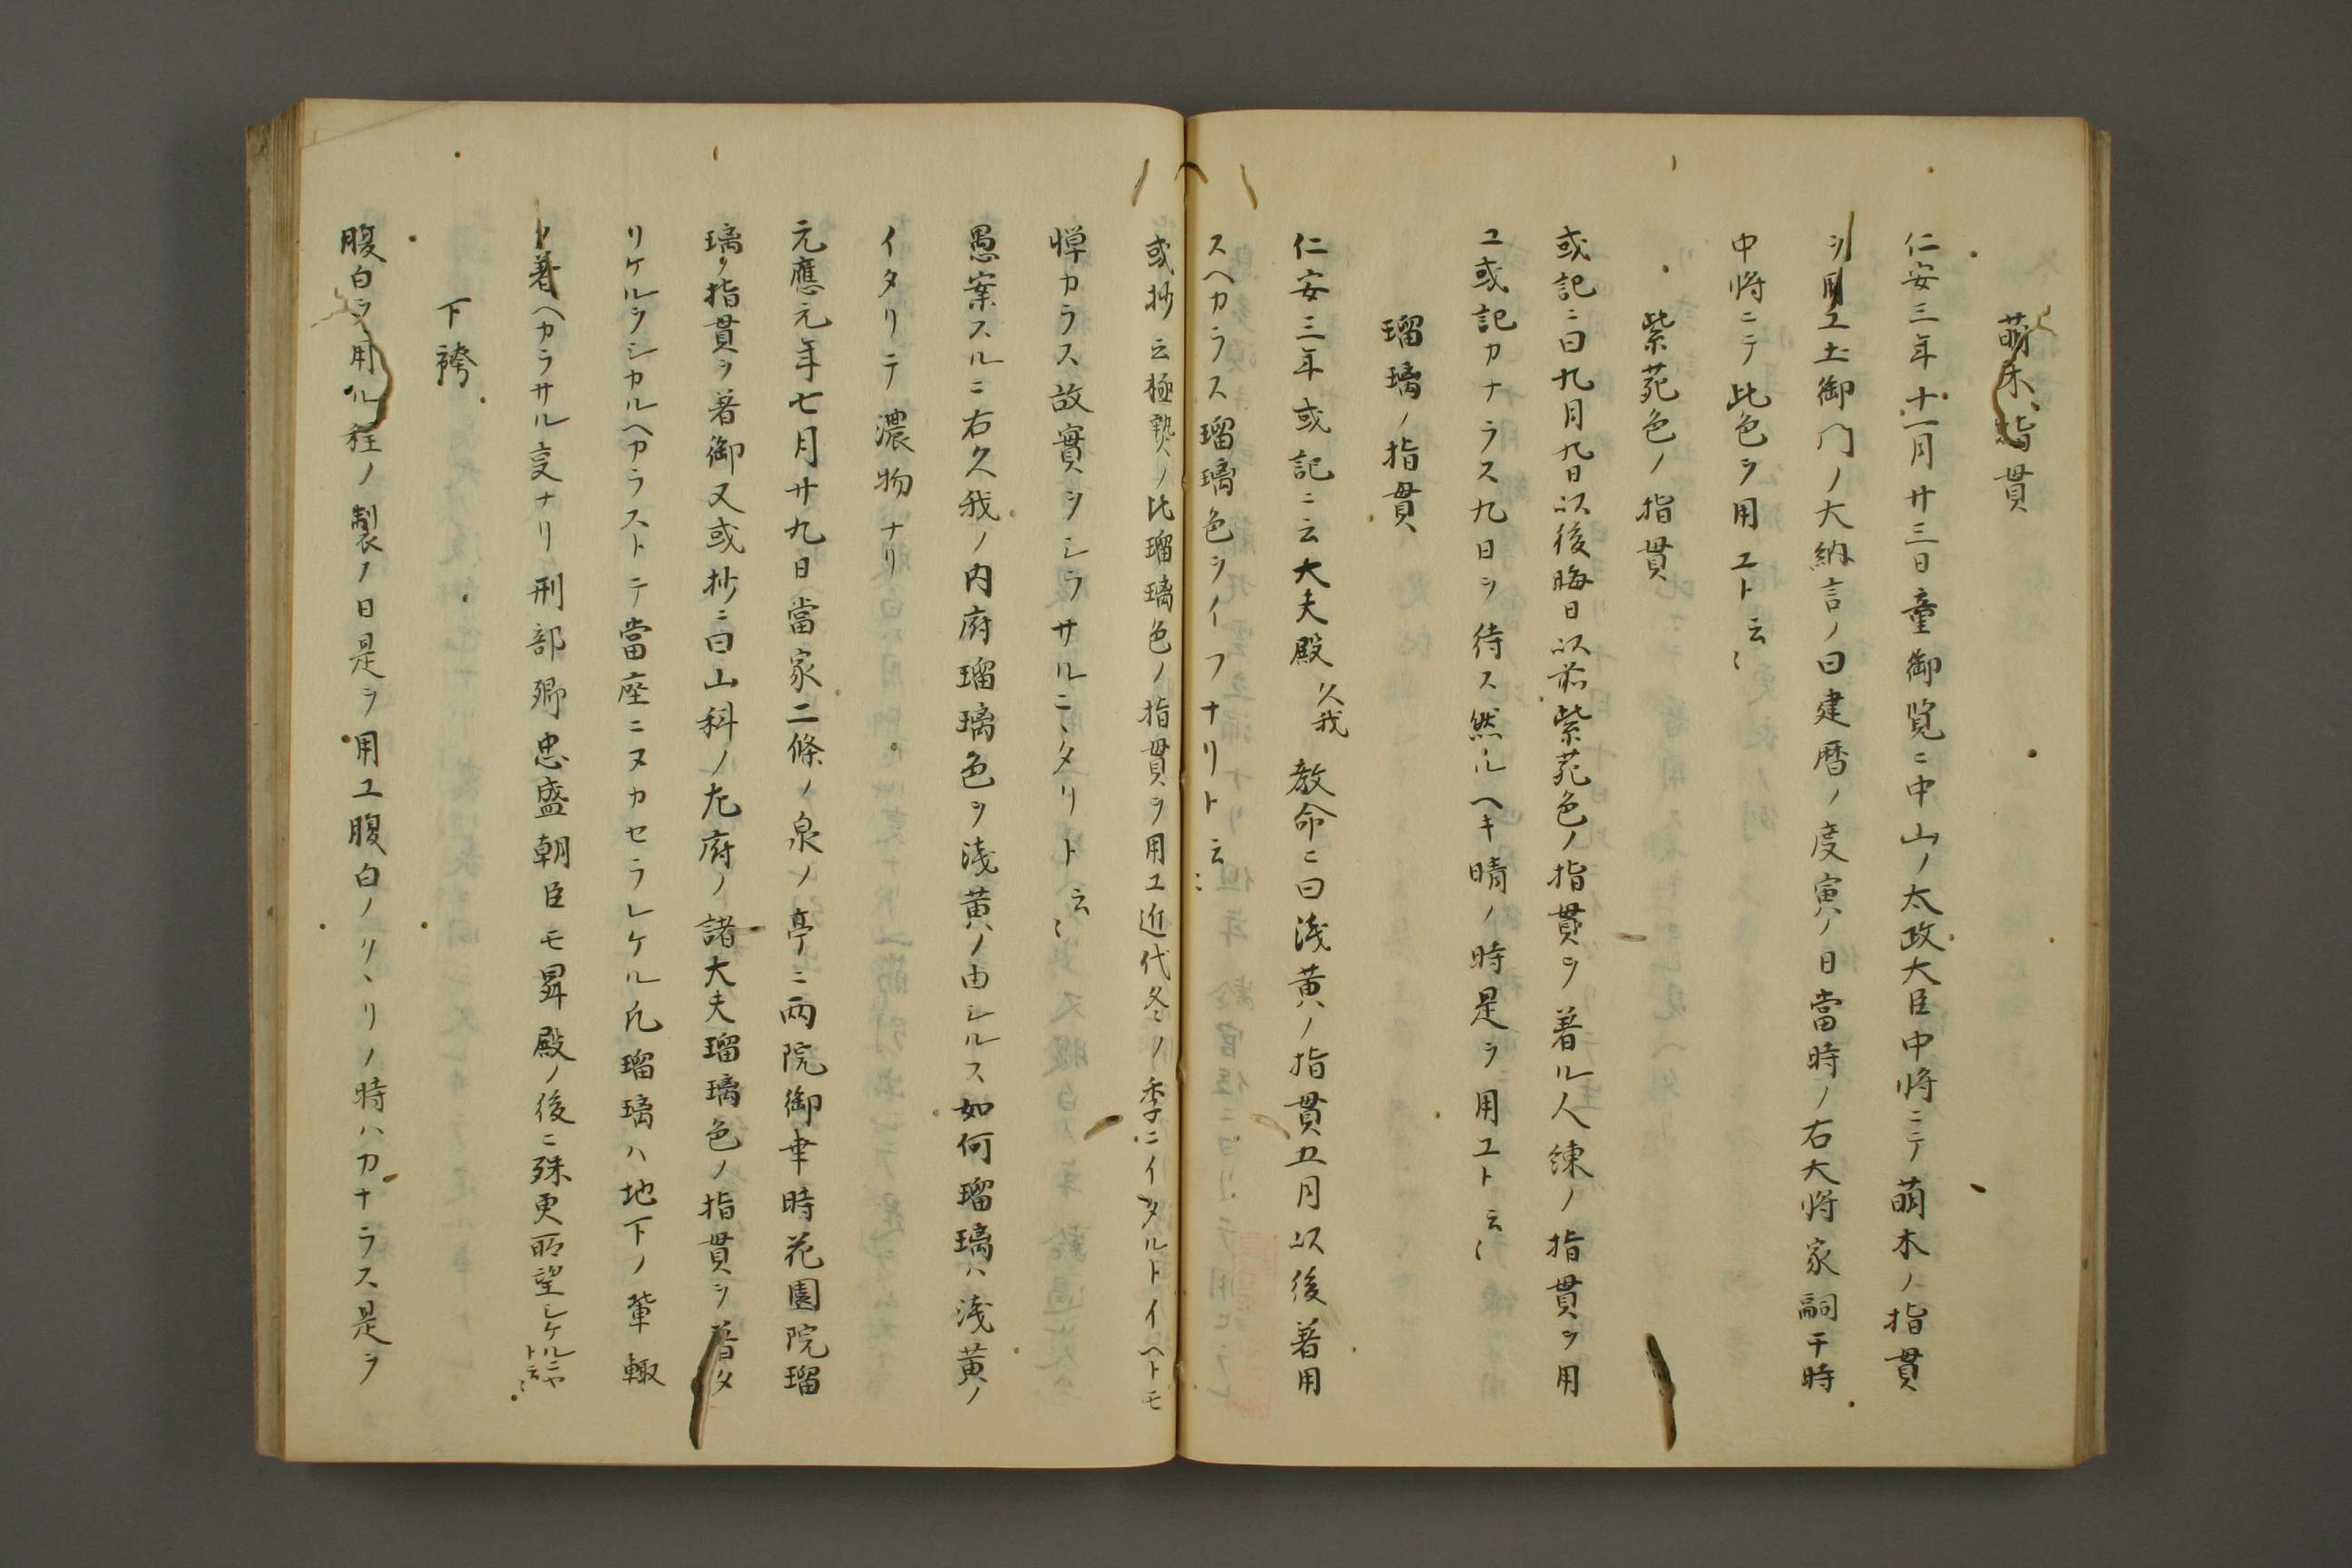 萌木ノ指貫
仁安三年十一月廿三日童御覧ニ中山ノ太政大臣中将ニテ萌木ノ指貫
ヲ用ユ土御門ノ大納言ノ曰建暦ノ度寅ノ日當時ノ右大将家嗣于時
中将ニテ此色ヲ用ユト云〻
紫苑色ノ指貫
或記ニ曰九月九日以後晦日以前紫苑色ノ指貫ヲ着ル人練ノ指貫ヲ用
ユ或記カナラス九日ヲ待ス然ルヘキ晴ノ時是ヲ用ユト云〻
瑠璃ノ指貫
仁安三年或記ニ云大夫殿久我教命ニ曰浅黄ノ指貫五月以後着用
スヘカラス瑠璃色ヲイフナリト云〻
或抄云極熱ノ比瑠璃色ノ指貫ヲ用ユ近代冬ノ季ニイタルトイヘトモ
憚カラス故實ヲシラサルニヽタリト云〻
愚案スルニ右久我ノ内府瑠璃色ヲ浅黄ノ由シルス如何瑠璃ハ浅黄ノ
イタリテ濃物ナリ
元應元年七月廿九日當家二條ノ泉ノ亭ニ両院御幸時花園院瑠
璃ノ指貫ヲ着御又或抄ニ曰山科ノ左府ノ諸大夫瑠璃色ノ指貫ヲ着タ
リケルヲシカルヘカラストテ當座ニヌカセラレケル凡瑠璃ハ地下ノ輩輙
ク着ヘカラサル亊ナリ刑部卿忠盛朝臣モ昇殿ノ後ニ殊更所望シケルニヤト云〻
下袴
腹白ヲ用ル狂ノ製ノ日是ヲ用ユ腹白ノリヽリノ時ハカナラス是ヲ